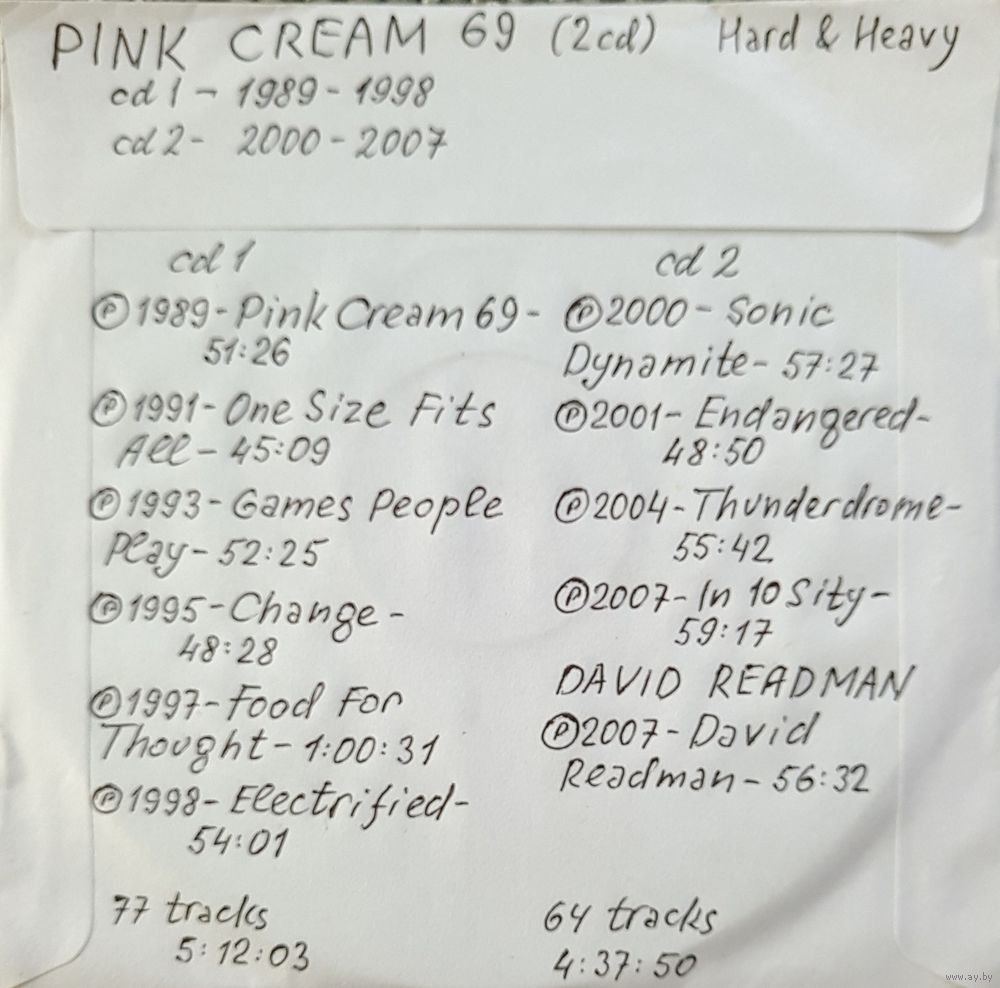 PINK CREAM 69 (2cd) Hard & Heavy
cd 1 - 1989 - 1998
cd 2 - 2000 - 2007
cd 1
℗1989-Pink Cream 69-
51:26
℗1991-One Size Fits
All-45:09
℗1993-Games People
Play-52:25
℗1995-Change-
48:28
℗1997-Food For
Thought-1:00:31
℗1998-Electrified-
54:01
77 tracks
5:12:03
cd 2
℗2000-Sonic
Dynamite-57:27
℗2001-Endangered-
48:50
℗2004-Thunderdrome-
55:42
℗2007-In 10 Sity-
59:17
DAVID READMAN
℗2007-David
Readman-56:32
64 tracks
4:37:50
www.ay.by